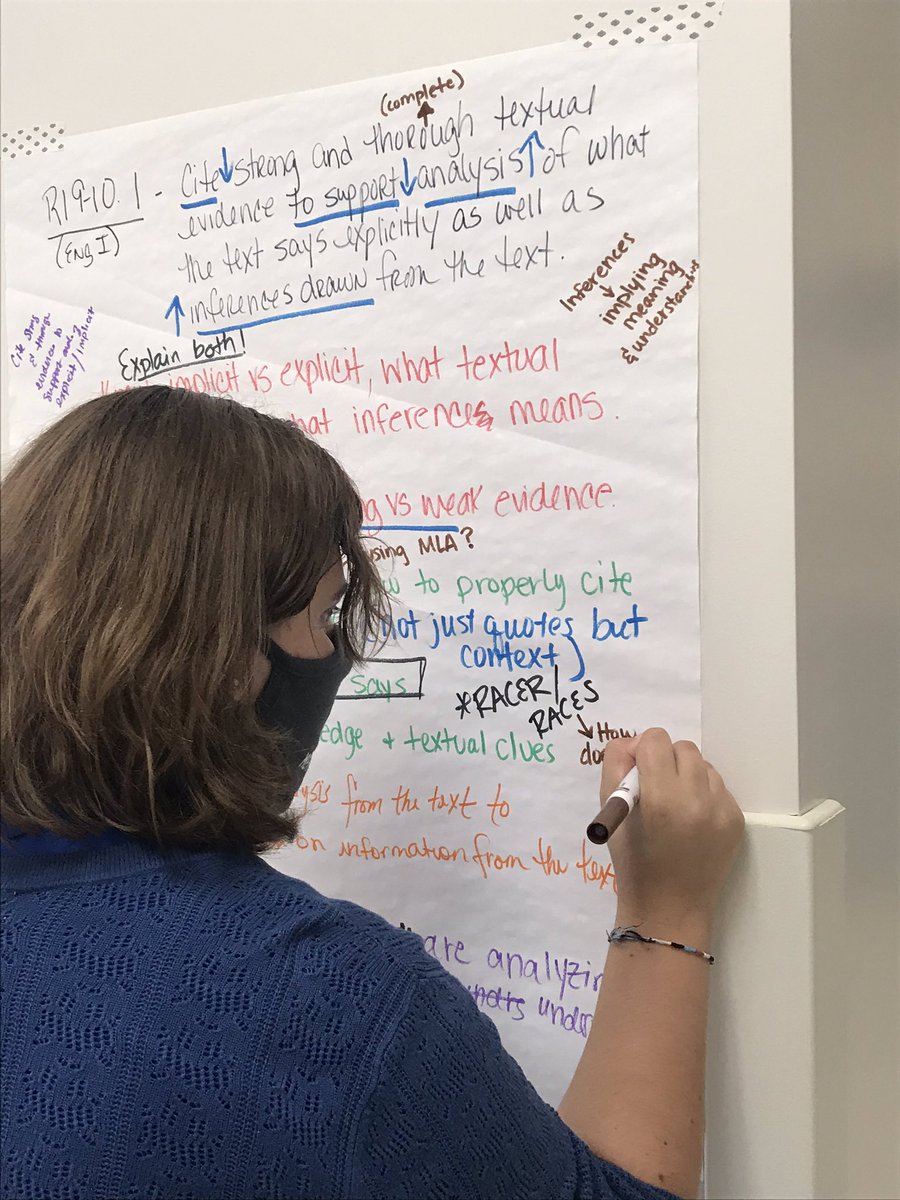 (complete)
RI9-10.1 - Cite strong and thorough textual
(ENG I)
evidence to support analysis of what
the text says explicitly as well as
inferences drawn from the text.
Inferences
implying
meaning
& understanding
Explain both!
Cite strong
& thorough
evidence to
support
explicit/implicit
implicit vs explicit, what textual
what inferences means.
vs weak evidence.
using MLA?
to properly cite
not just quotes but
context
says
*RACER/
RACES
How
textual clues
from the text to
on information from the text
are analyzin
under